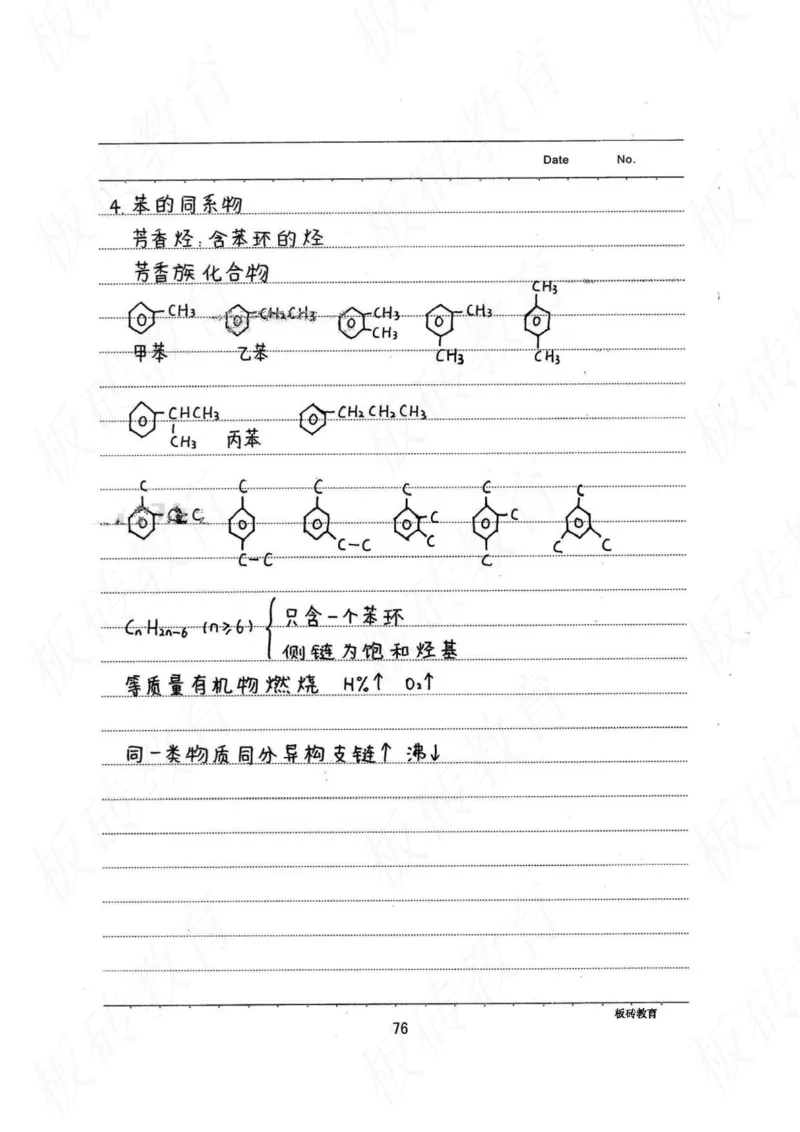 Date No.
4. 苯的同系物
芳香烃：含苯环的烃
芳香族化合物
CH3
CH3 CH2CH3 CH3 CH3
CH3
甲苯 乙苯 CH3 CH3
CHCH3 CH2CH2CH3
CH3 丙苯
C C C C C C
C-C C C
C-C C C C
C-C C
CnH2n-6 (n≥6) { 只含一个苯环
侧链为饱和烃基
等质量有机物燃烧 H%↑ O2↑
同一类物质同分异构支链↑ 沸↓
板砖教育
76